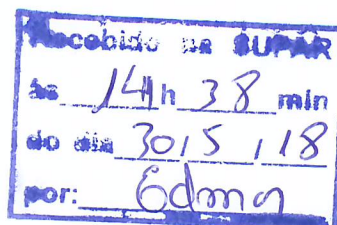 Recebido na SUPAR
às 14 h 38 min
do dia 30/5/18
por: Edma